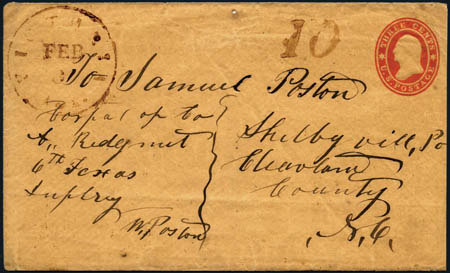 FEB
10
THREE CENTS
U.S. POSTAGE
To Samuel Poston
Corpal of Co
A, Redgmnt
6th Texas
Inftry
W, Poston
Shelby vill, Po
Cleavland
County
N, C,